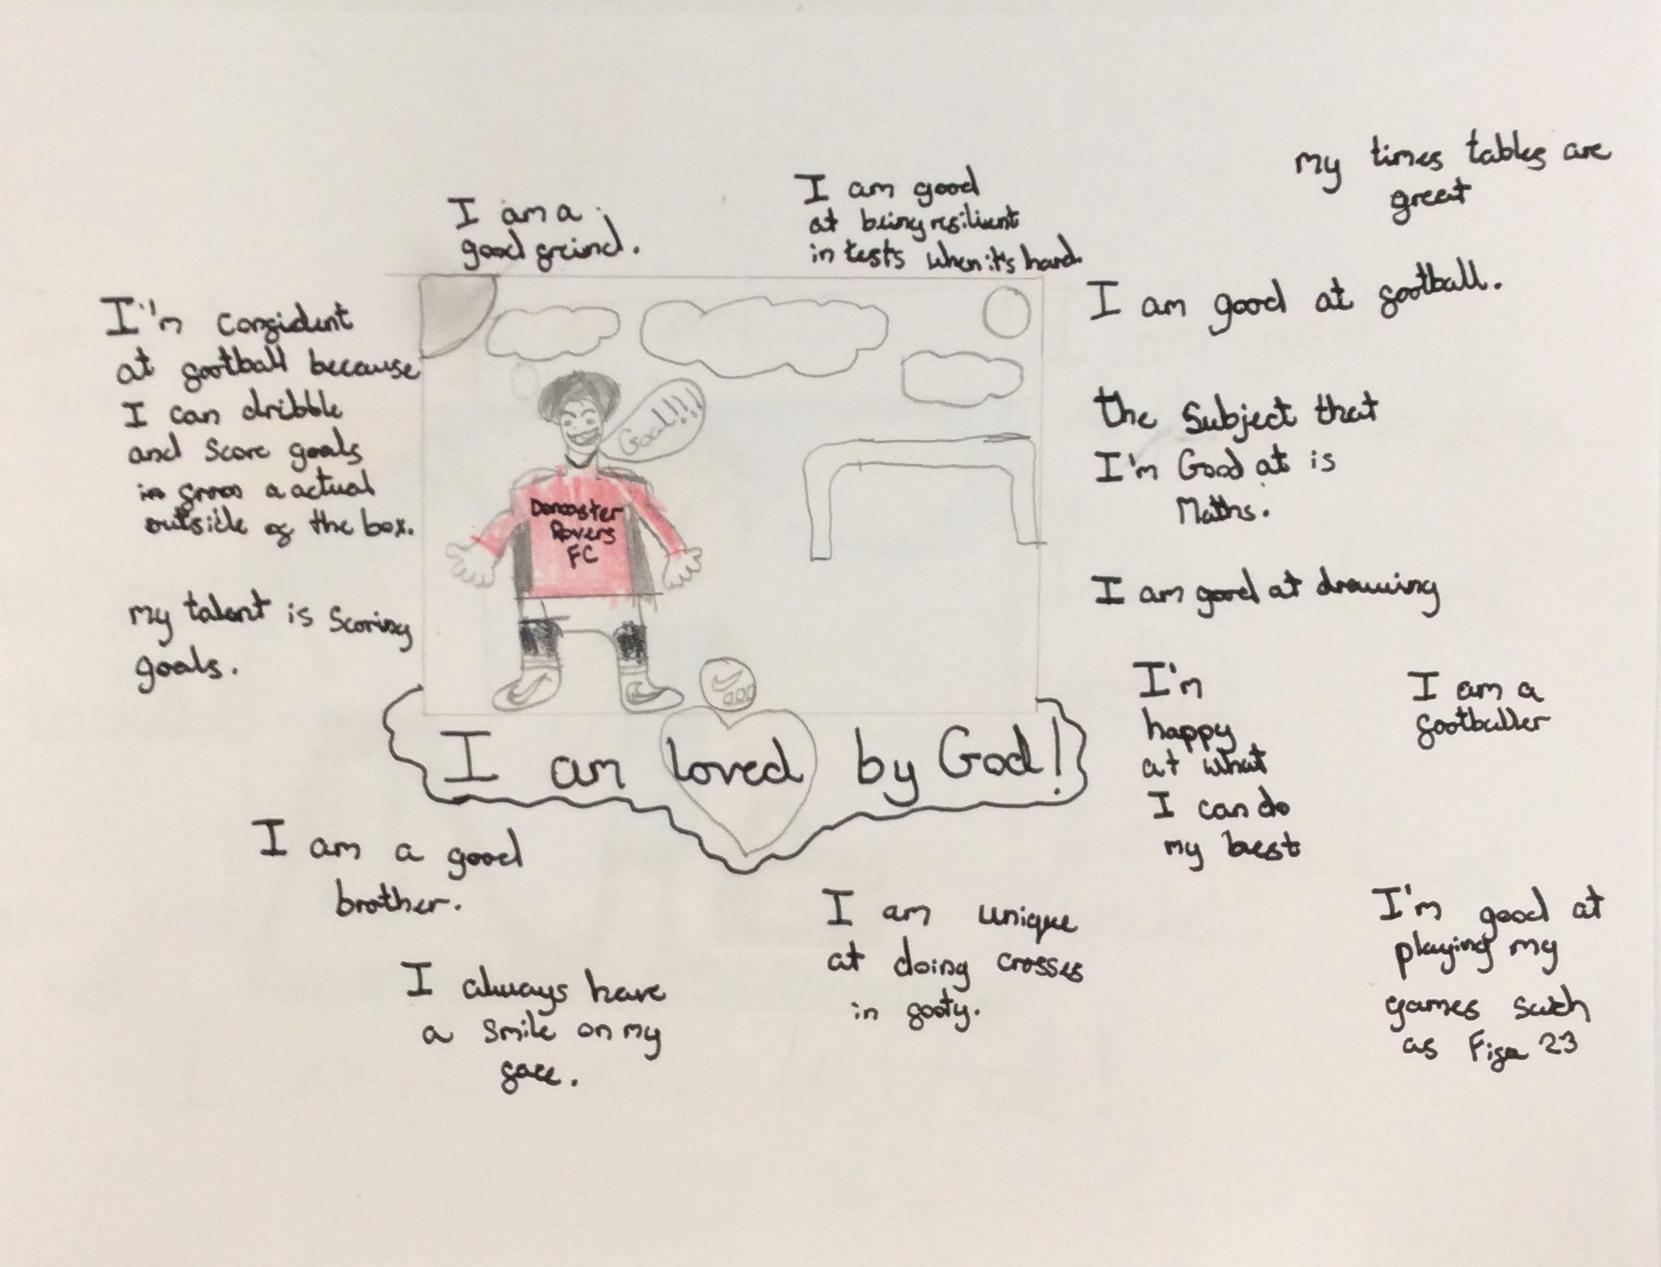 my times tables are
great
I am a
good freind.
I am good
at being resilient
in tests when it's hard
I am good at football.
I'm confident
at football because
I can dribble
and score goals
from a actual
outside of the box.
Goal!!!
Doncaster
Rovers
FC
the Subject that
I'm Good at is
Maths.
I am good at drawing
my talent is scoring
goals.
I'm
happy
at what
I can do
my best
I am a
footballer
I am loved by God!
I am a good
brother.
I always have
a smile on my
face.
I am unique
at doing crosses
in footy.
I'm good at
playing my
games such
as Fifa 23